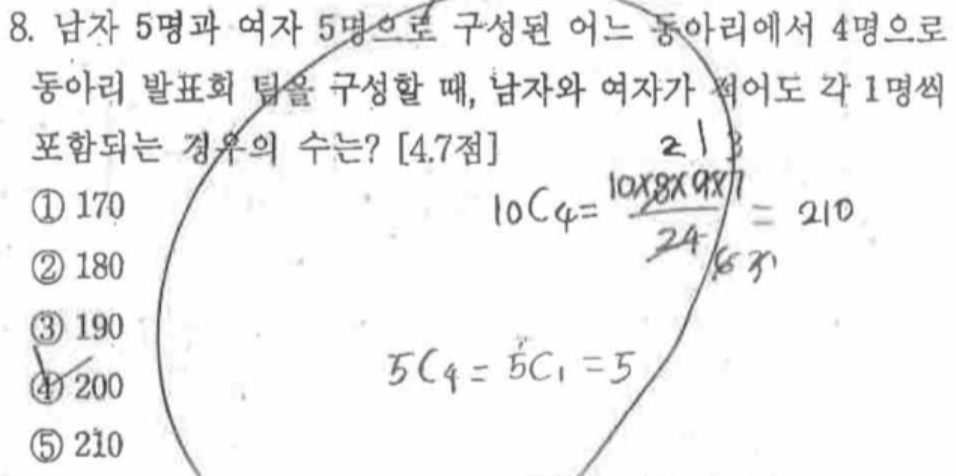 8. 남자 5명과 여자 5명으로 구성된 어느 동아리에서 4명으로
동아리 발표회 팀을 구성할 때, 남자와 여자가 적어도 각 1명씩
포함되는 경우의 수는? [4.7점]
① 170
② 180
③ 190
④ 200
⑤ 210
2 1 3
10C4 = 10×8×9×7 / 24 = 210
5C4 = 5C1 = 5